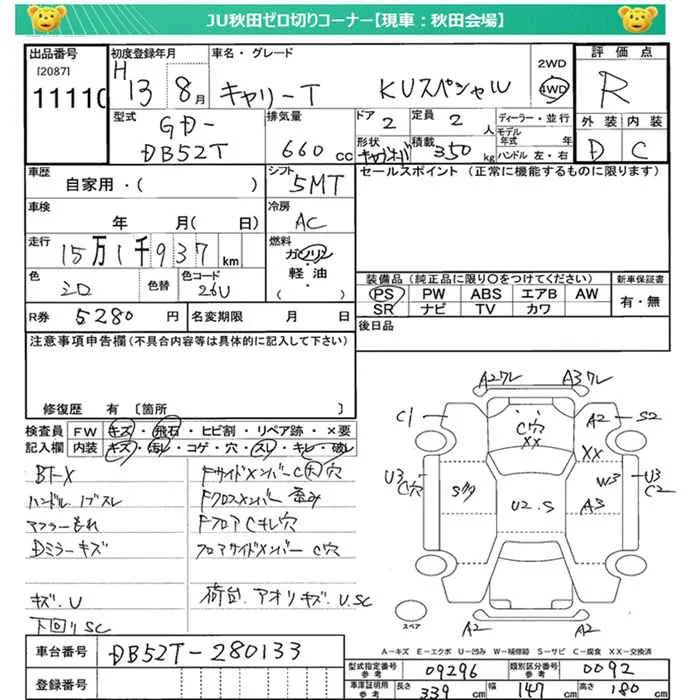 JU秋田ゼロ切りコーナー【現車：秋田会場】
出品番号
[2087]
11110
初度登録年月
H13 8月
車名・グレード
キャリーT KUスペシャル
2WD
4WD
評価点
R
外装 内装
D C
型式
GD-
DB52T
排気量
660 cc
ドア
2
定員
2 人
形状
積載
350 kg
ディーラー・並行
モデル年式 年
ハンドル 左・右
車歴
自家用・( )
シフト
5MT
セールスポイント (正常に機能するものに限ります)
車検
年 月( 日)
冷房
AC
走行
15万1千937 km
燃料
ガソリン
軽油
( )
色
シロ
色替
色コード
26U
装備品 (純正品に限り○をつけてください)
新車保証書
PS PW ABS エアB AW
SR ナビ TV カワ
有・無
R券 5280 円
名変期限 月 日
後日品
注意事項申告欄 (不具合内容等は具体的に記入して下さい)
修復歴 有 〔箇所 〕
検査員記入欄
FW キズ・飛石・ヒビ割・リペア跡・×要
内装 キズ・汚レ・コゲ・穴・スレ・キレ・破レ
BT-X
ハンドル1ブスレ
マフラーもれ
Dミラーキズ
キズ.U
下回りSC
FサイドメンバーC穴
Fクロスメンバー歪み
FフロアCキレ穴
フロアサイドメンバー C穴
荷台.アオリキズ.U.SC
A2ワレ A3ワレ
C1
C穴
XX
A2
S2
XX
U3
C穴
S穴
U2.S
W3
A3
U3
C2
スペア
A2 A2
A－キズ E－エクボ U－凹み W－補修跡 S－サビ C－腐食 XX－交換済
車台番号
DB52T-280133
登録番号
型式指定番号
参考
09296
類別区分番号
参考
0092
車庫証明用
参考
長さ 339 cm
幅 147 cm
高さ 180 cm